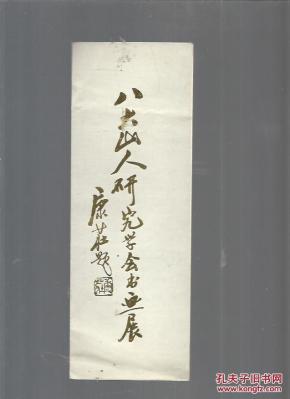 八大山人研究学会书画展
康庄题
孔夫子旧书网